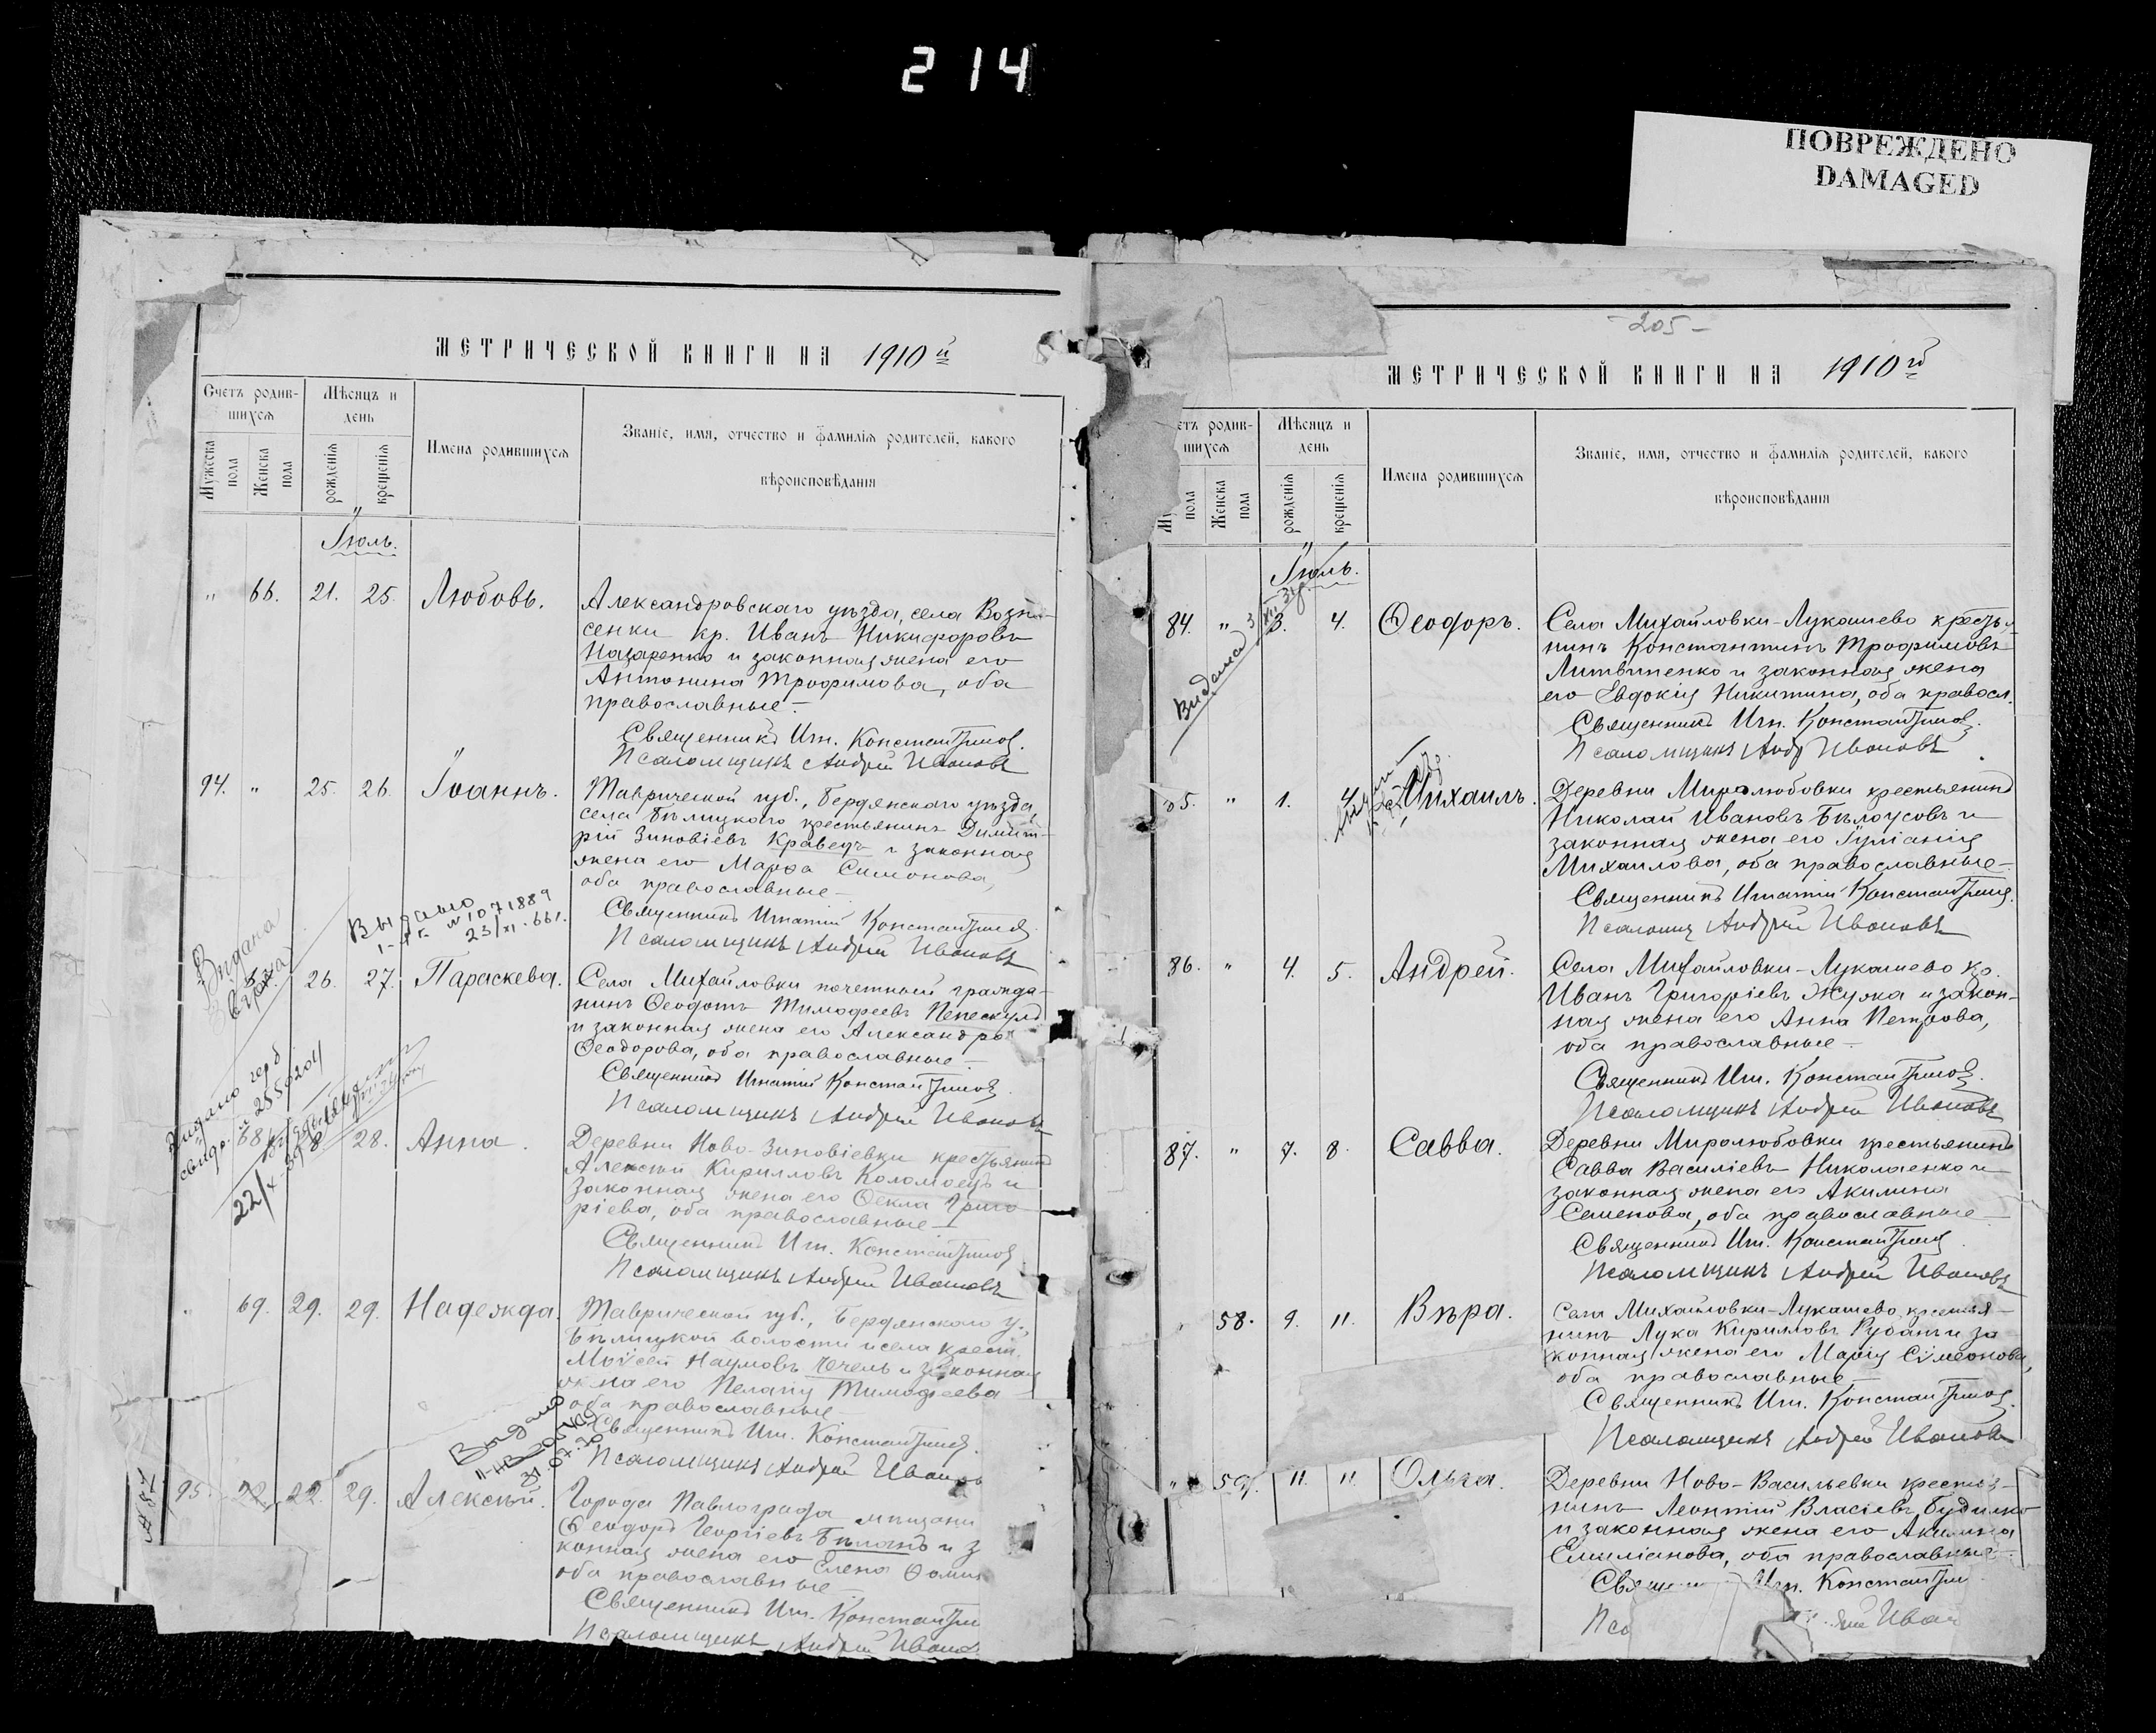 214
ПОВРЕЖДЕНО
DAMAGED
МЕТРИЧЕСКОЙ КНИГИ НА 1910й
Счетъ родив-
шихся
Мѣсяцъ и
день
Мужеска
пола
Женска
пола
рожденія
крещенія
Имена родившихся
Званіе, имя, отчество и фамилія родителей, какого
вѣроисповѣданія
Іюль.
" 66. 21. 25. Любовь.
Александровскаго уѣзда, села Возне-
сенки кр. Иванъ Никифоровъ
Назаренко и законная жена его
Антонина Трофимова, оба
православные –
Священникъ Игн. Константиновъ.
Псаломщикъ Андрей Ивановъ
94. " 25. 26. Іоаннъ.
Таврической губ., Бердянскаго уѣзда,
села Бѣлицкаго крестьянинъ Димит-
рій Зиновіевъ Кравецъ и законная
жена его Марфа Симонова,
оба православные –
Священникъ Игнатій Константиновъ
Псаломщикъ Андрей Ивановъ
Выдано
1-АГ. №1071889
23/XI-66г.
Видана
26. 27. Параскева.
Села Михайловки почетный гражда-
нинъ Феодотъ Тимофеевъ
и законная жена его Александра
Феодорова, оба православные –
Священникъ Игнатій Константиновъ.
Псаломщикъ Андрей Ивановъ
Видано герб
свидо.
22/X-39
68. 28. Анна.
Деревни Ново-Зиновіевки крестьянинъ
Алексѣй Кирилловъ Коломоецъ и
законная жена его Фекла Григо-
ріева, оба православные –
Священникъ Игн. Константиновъ
Псаломщикъ Андрей Ивановъ
" 69. 29. 29. Надежда.
Таврической губ., Бердянскаго у.,
Бѣлицкой волости и села крест.
Моѵсей Наумовъ Чечель и законная
жена его Пелагія Тимофеева
оба православные
Священникъ Игн. Константиновъ.
Псаломщикъ Андрей Иванов
Выдано
31.07.70
95. 22. 29. Алексѣй.
Города Павлограда мѣщани
Феодоръ Георгіевъ Бѣланъ и з
конная жена его Елена Фоми
оба православные –
Священникъ Игн. Константин
Псаломщикъ Андрей Иванов
-205-
МЕТРИЧЕСКОЙ КНИГИ НА 1910й
етъ родив-
шихся
Мѣсяцъ и
день
пола
Женска
пола
рожденія
крещенія
Имена родившихся
Званіе, имя, отчество и фамилія родителей, какого
вѣроисповѣданія
Іюль.
84. " 3. 4. Феодоръ.
Видана
Села Михайловки-Лукашево крестья-
нинъ Константинъ Трофимовъ
Литвиненко и законная жена
его Евдокія Никитина, оба правосл.
Священникъ Игн. Константиновъ.
Псаломщикъ Андр Ивановъ
85. " 1. 4. Михаилъ.
Деревни Миролюбовки крестьянинъ
Николай Ивановъ Бѣлоусовъ и
законная жена его Іуліанія
Михаилова, оба православные –
Священникъ Игнатій Константиновъ.
Псаломщ Андрей Ивановъ
86. " 4. 5. Андрей.
Села Михайловки-Лукашево кр.
Иванъ Григоріевъ Жужка и закон-
ная жена его Анна Петрова,
оба православные –
Священникъ Игн. Константиновъ.
Псаломщикъ Андрей Ивановъ
87. " 7. 8. Савва.
Деревни Миролюбовки крестьянинъ
Савва Василіевъ Николаенко и
законная жена его Акилина
Семенова, оба православные –
Священникъ Игн. Константиновъ.
Псаломщикъ Андрей Ивановъ
58. 9. 11. Вѣра.
Села Михайловки-Лукашево крестья-
нинъ Лука Кирилловъ Рубанъ и за-
конная жена его Марія Сѵмеонова,
оба православные –
Священникъ Игн. Константиновъ.
Псаломщикъ Андрей Ивановъ
" 59. 11. 11. Ольга.
Деревни Ново-Васильевки крестья-
нинъ Леонтій Власіевъ Будилко
и законная жена его Акилина
Емиліанова, оба православные –
Свящ Игн. Константин
Пса Иван